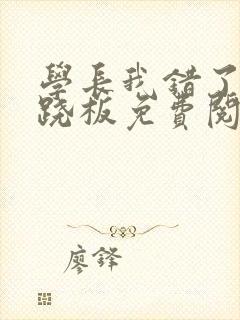 學長我錯了
跷板免費閱
廖鋒